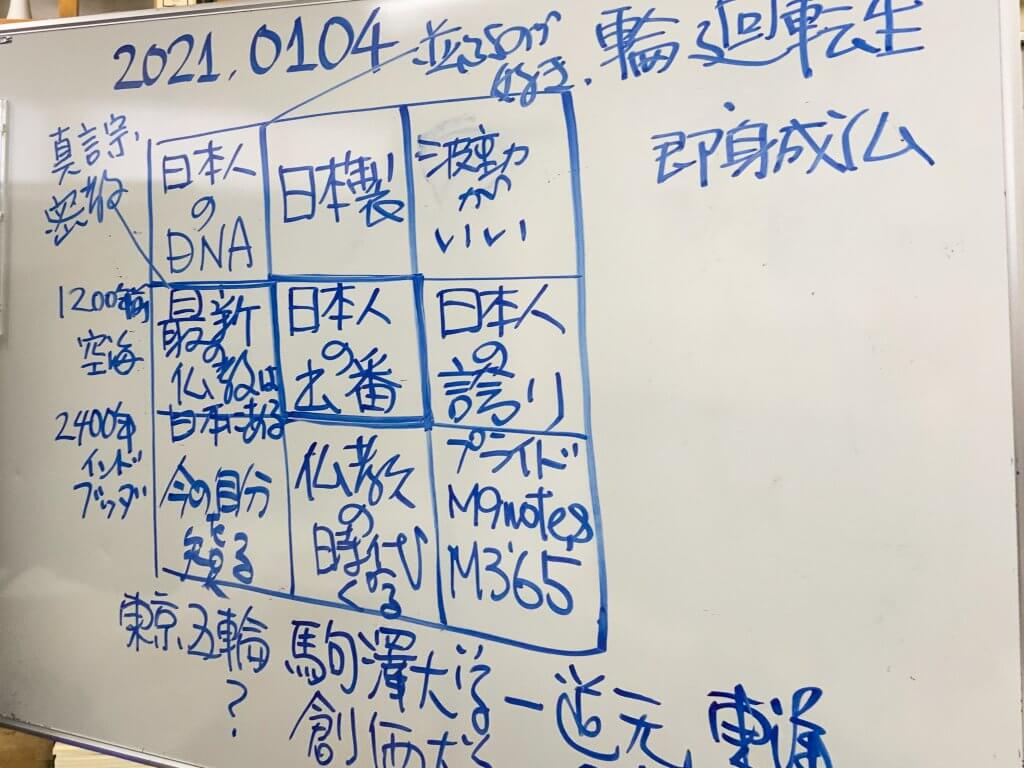 2021.0104
並ぶ50m
好き.
輪廻転生
即身成仏
真言宗
密教
日本人
の
DNA
日本製
波動
が
いい
1200年前
空海
最新
の
仏教は
日本にある
日本人
の
出番
日本人
の
誇り
2400年
インド
ブッダ
今の自分
を
知る
仏教
の
時代
くる
プライド
M9notes
M365
東京五輪
?
駒澤大学ー道元
創価大